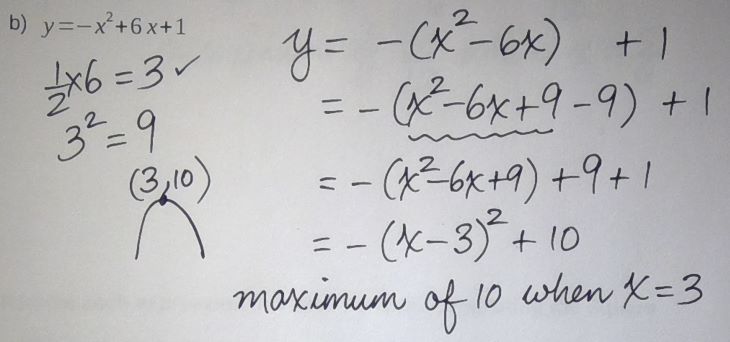 b) y=−x²+6x+1
½×6=3✓
3²=9
(3,10)
y= −(x²−6x) +1
= −(x²−6x+9−9)+1
= −(x²−6x+9)+9+1
= −(x−3)²+10
maximum of 10 when x=3